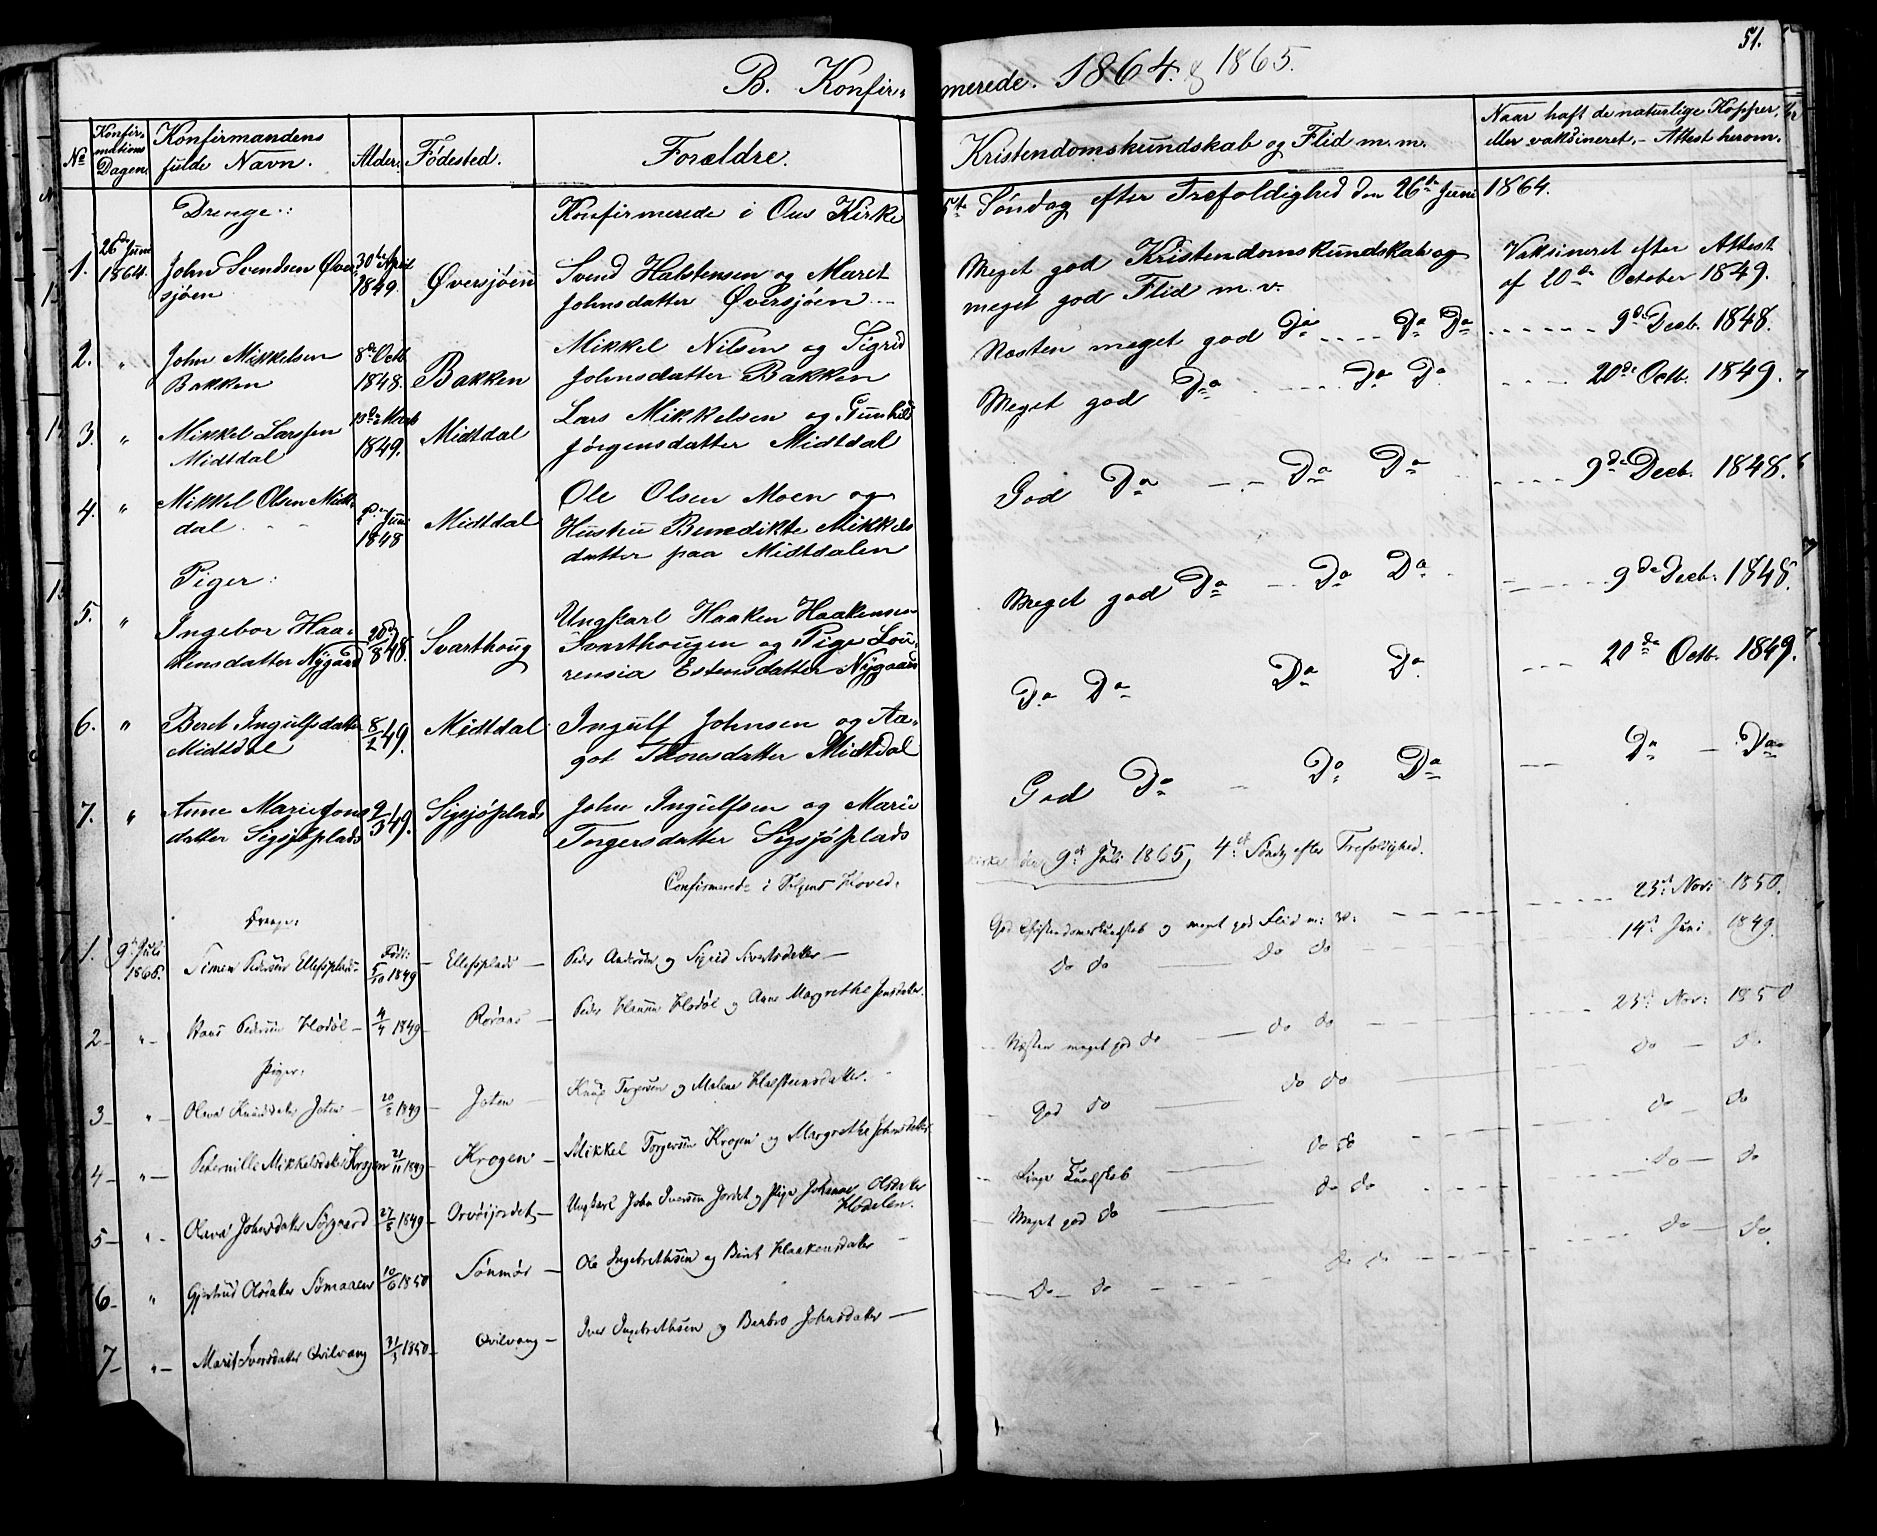 51.
B. Konfir=merede. 1864. & 1865.
No
Konfirmations Dagen.
Konfirmandens fulde Navn.
Alder.
Fødested.
Forældre.
Kristendomskundskab og Flid m. m.
Naar haft de naturlige Kopper, eller vaksineret. - Attest herom.
Drenge:
Konfirmerede i Ous Kirke 5te Søndag efter Trefoldighed den 26de Juni 1864.
1. 26de Juni 1864. John Svendsen Øversjøen 30de April 1849. Øversjøen Svend Halstensen og Maret Johnsdatter Øversjøen Meget god Kristendomskundskab og meget god Flid m. v. Vaksineret efter Attest af 20de October 1849.
2. " John Mikkelsen Bakken 8de Octb. 1848. Bakken Mikkel Nilsen og Sigrid Johnsdatter Bakken Næsten meget god Do Do Do 9de Decb. 1848.
3. " Mikkel Larssen Midtdal 1849. Midtdal Lars Mikkelsen og Gunhild Jørgensdatter Midtdal Meget god Do Do Do 20de Octb. 1849.
4. " Mikkel Olsen Midtdal Juni 1848 Midtdal Ole Olsen Moen og Hustru Benedikte Mikkelsdatter paa Midtdalen God Do Do Do 9de Decb. 1848.
Piger:
5. " Ingebor Haakensdatter Nygaard 20/8 48. Svarthoug Ungkarl Haaken Haakensen Svarthougen og Pige Lourensia Estensdatter Nygaard Meget god Do Do Do 9de Decb. 1848.
6. " Beret Ingulfsdatter Midtdal 8/2 49. Midtdal Ingulf Johnsen og Aagot Thoresdatter Midtdal Do Do Do Do 20de Octb. 1849.
7. " Anne Marie Jonsdatter Sigsjøplads 2/3 49. Sigsjøplads John Ingulfsen og Marie Torgersdatter Sigsjøplads God Do Do Do Do Do
Confirmerede i Hoved-kirke den 9de Juli 1865, 4de Søndag efter Trefoldighed.
Drenge:
1. 9de Juli 1865. Simen Pedersen Ellefsplads Født: 5/10 1849 Ellefsplads Peder Andersen og Sigrid Sivertsdatter God Christendomskundskab og meget god Flid m. v. 23de Nov: 1850.
2 " Hans Pedersen Hodøl 4/4 1849 Røraas Peder Hansen Hodøl og Anne Margrethe Jensdatter do do do do 14de Juni 1849.
Piger:
3 " Olava Knudsdatter Joten 20/8 1849 Joten Knud Torgersen og Malene Halsteensdatter. Næsten meget god do do do 23de Nov: 1850
4 " Pedernille Mikkelsdatter Krogen 21/11 1849 Krogen Mikkel Torgersen Krogen og Margrethe Johnsdatter God do do do do do
5 " Olava Johnsdatter Sørgaard 27/5 1849 Ungkarl John Iversen Jordet og Pige Olsdatter Hodalen. Ringe Kundskab do do do do
6 " Gjertrud Olsdatter Sømaaen 10/6 1850 Ole Ingebrethsen og Berit Haakensdatter Meget god do do do do do
7 " Marit Iversdatter Qvilvang 31/5 1850 Qvilvang Iver Ingebrethsen og Berbro Johnsdatter do do do do do do